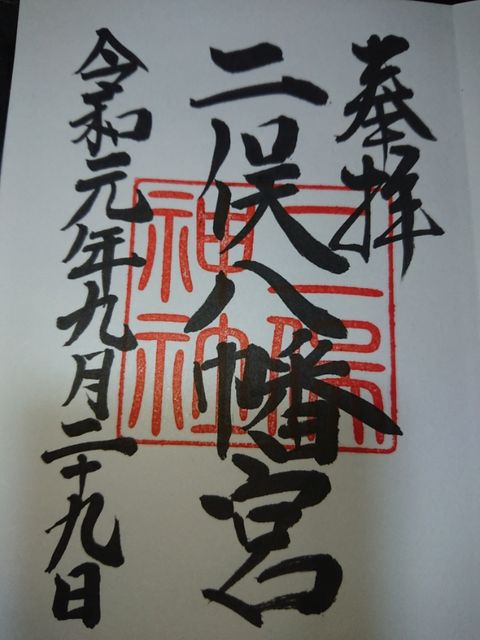 奉拝
二俣八幡宮
令和元年九月二十九日